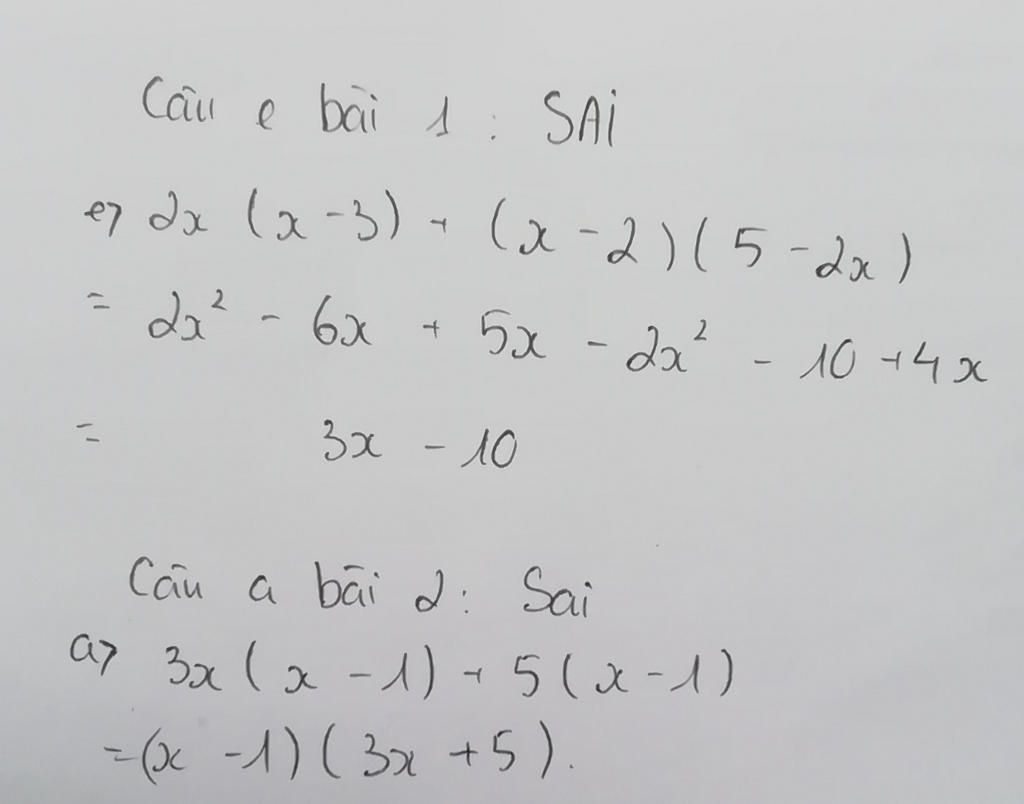 Câu e bài 1 : SAi
e> 2x (x - 3) + (x - 2)(5 - 2x)
= 2x² - 6x + 5x - 2x² - 10 + 4x
= 3x - 10
Câu a bài 2 : Sai
a> 3x(x - 1) + 5(x - 1)
= (x - 1)(3x + 5).